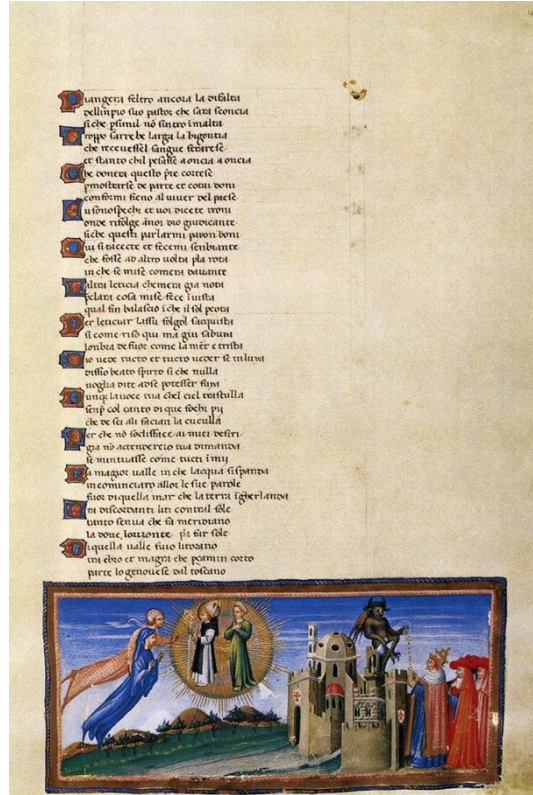 Piangera feltro ancora la difalta
dellinpio suo pastor che sara sconcia
si che psimil nō sintro imalta
Troppo sarrebe larga la bigontia
che receuessel sangue ferrarese
et stanto chil pesasse a oncia a oncia
Che donera questo pre cortese
pmostrarse de parte et cotai doni
conformi fieno al uiuer del paese
Su sono spechi et uoi dicete troni
onde rifolge anoi dio giudicante
siche questi parlarmi paion boni
Qui si tacette et fecemi senbiante
che fosse ad altro uolta pla rota
in che se mise comera dauante
Laltra leticia chemera gia nota
pclara cosa mise fece iuista
qual fin balascio i che il sol pcota
Per leticiar lassu folgor sacquista
si come riso qui ma giu sabuia
lonbra de fuor come la mēte e trista
Dio uede tucto et tucto ueder se inluia
dissio beato spirto si che nulla
uoglia dite adse potesser fuia
Dunqȝ la uoce tua chel ciel trastulla
senp̄ col canto di que fochi pii
che de sei ali facian la cuculla
Per che nō sodisface ai miei desiri
gia nō actenderei o tua dimanda
se mintuasse come tu ti imii
La magior ualle in che lacqua si spanda
incominciaro allor le sue parole
fuor di quella mar che la terra igherlanda
Tra discordanti liti contral sole
tanto senua che fa meridiano
la doue lorizonte pā far sole
Di quella ualle fuio litorano
tra ebro et magra che pcamin corto
parte lo genouese dal toscano